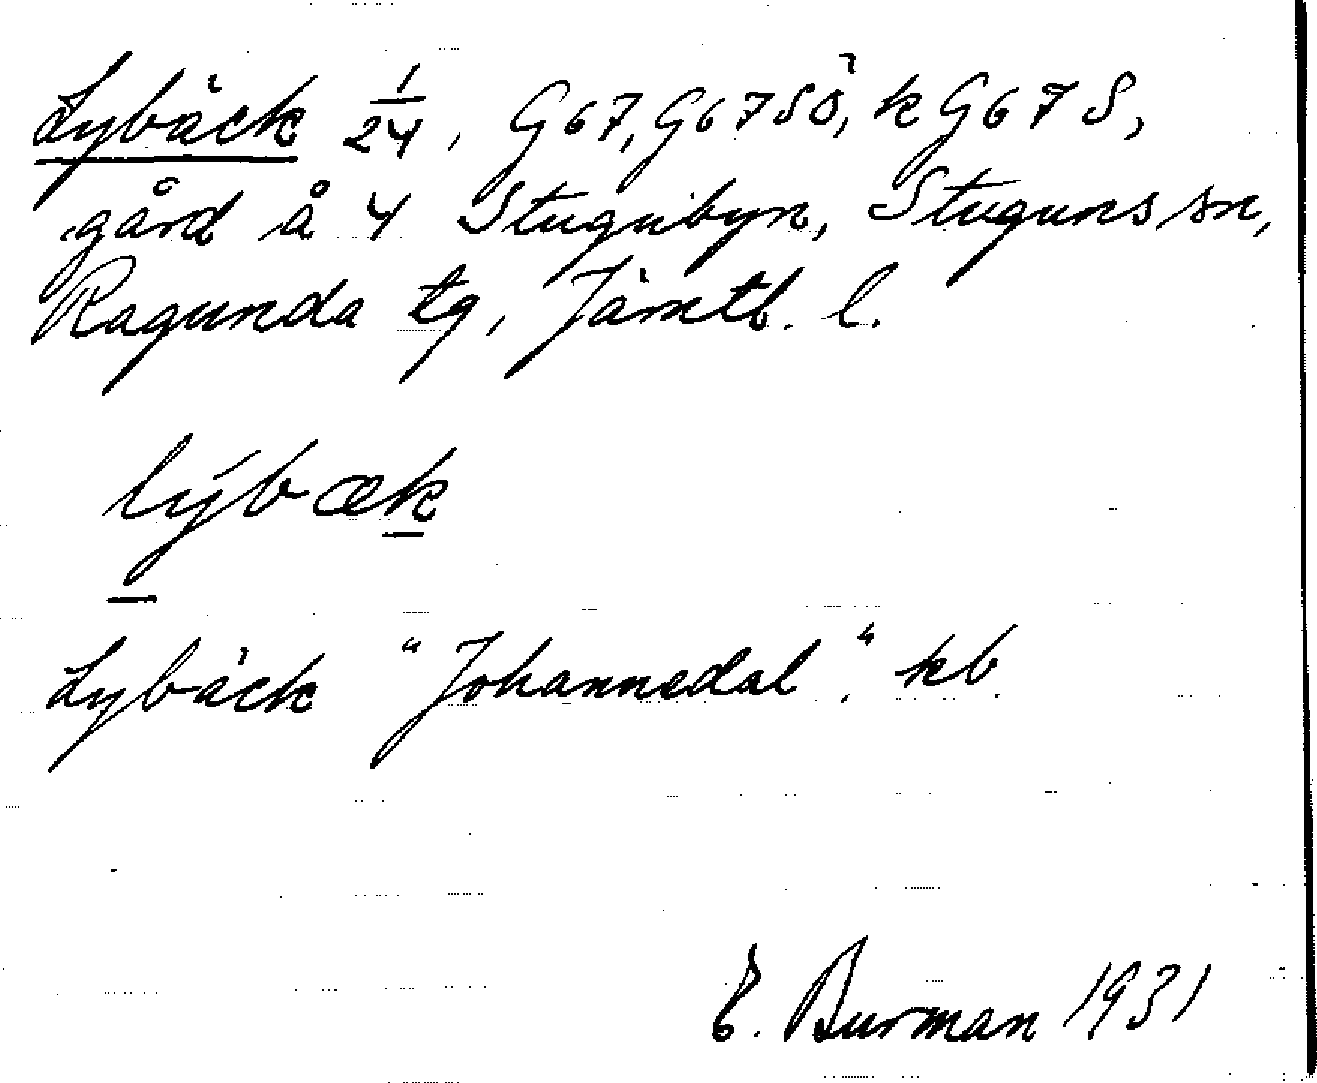 Lybäck 1/24, G67, G67SÖ, k G67S,
gård å 4 Stugubyn, Stuguns sn,
Ragunda tg, Jämtl. l.
lýbæk
Lybäck "Johannedal". kb.
E. Burman 1931